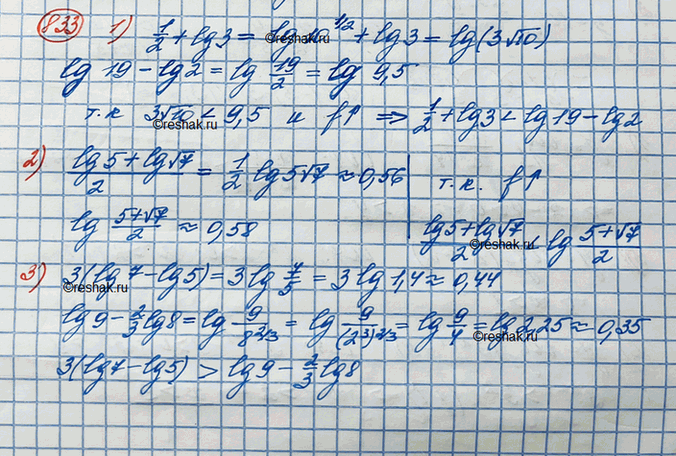 833 1) 1/2 + lg 3 = lg 10^1/2 + lg 3 = lg(3√10)
lg 19 - lg 2 = lg 19/2 = lg 9,5
т.к 3√10 < 9,5 и f↑ ⇒ 1/2 + lg 3 < lg 19 - lg 2
2) (lg 5 + lg √7)/2 = 1/2 lg 5√7 ≈ 0,56
т.к. f↑
lg (5+√7)/2 ≈ 0,58
(lg 5 + lg √7)/2 < lg (5+√7)/2
3) 3(lg 7 - lg 5) = 3 lg 7/5 = 3 lg 1,4 ≈ 0,44
lg 9 - 2/3 lg 8 = lg 9/8^2/3 = lg 9/(2^3)^2/3 = lg 9/4 = lg 2,25 ≈ 0,35
3(lg 7 - lg 5) > lg 9 - 2/3 lg 8
©reshak.ru
©reshak.ru
©reshak.ru
©reshak.ru
©reshak.ru